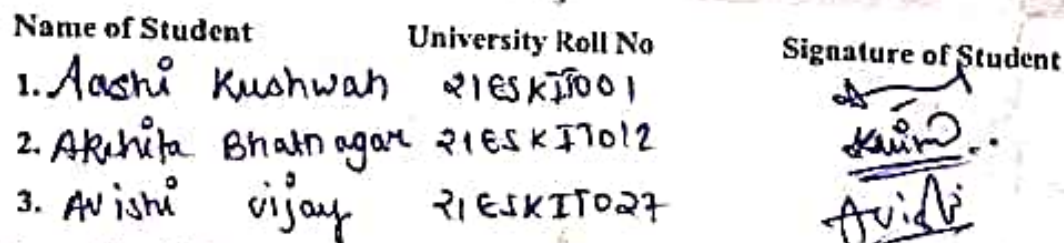 Name of Student University Roll No Signature of Student
1. Aashi Kushwah 21ESKIT001
2. Akshita Bhatnagar 21ESKIT012
3. Avishi Vijay 21ESKIT027 Avishi